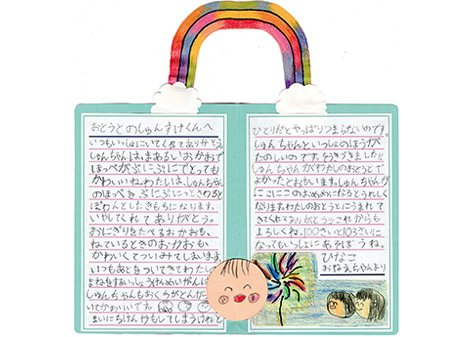 おとうとのしゅんすけくんへ
いつもいっしょにいてくれてありがとう。
しゅんちゃんは、まあるいおかおで
ほっぺがぷにぷにでとっても
かわいいね。わたしは、しゅんちゃん
のほっぺをぷにぷにっとさわると
ほわんとしたきもちになります。
いやしてくれてありがとう。
おにぎりをたべるおかおも、
ねているときのおかおも
かわいくてついみてしまいます。
いつもあとをついてきてわたし
まねをする
しゅんちゃんも
いてかわいいです。
まいにちけんかもしてしまうけれど
ひとりだとやっぱりつまらないのです。
しゅんちゃんといっしょのほうが
たのしいのです。
しゅんちゃんがわたしのおとうとで
よかったとおもいます。しゅんちゃんが
にこにこ うれしく
なります。わたしのおとうとにうまれて
きてくれてありがとう。これからも
よろしくね。100さいと103さいに
なってもいっしょにあそぼうね。
ひなこ
おねえちゃんより